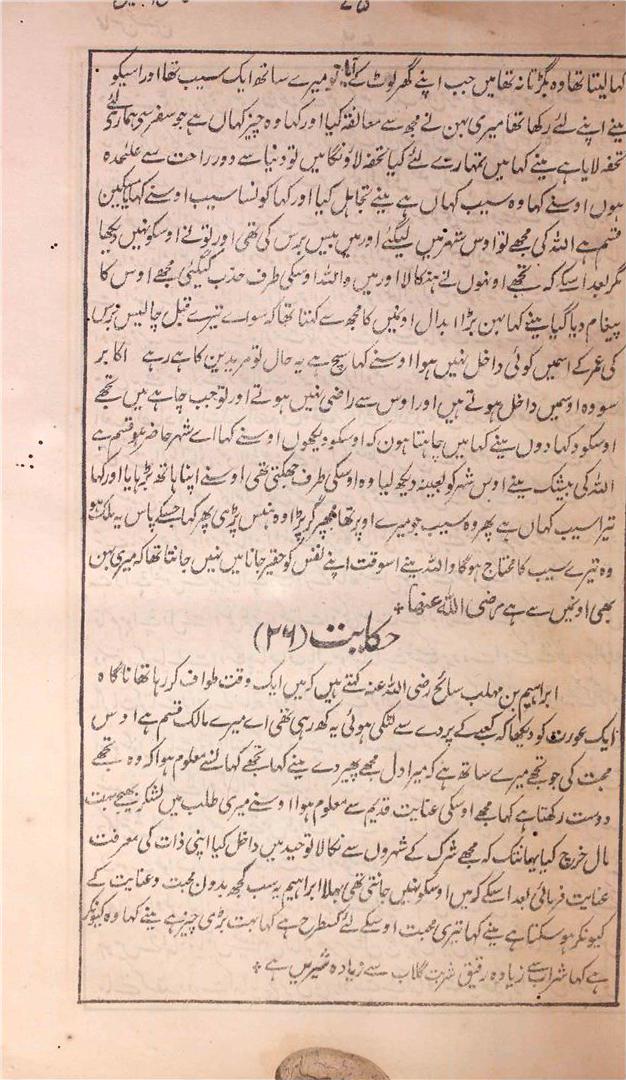 کہا لیتا تھا وہ بگڑتا نہ تھا میں جب اپنے گھر لوٹ کے آیا تو میرے ساتھ ایک سیب تھا اور اسیکو
مینے اپنے لئے رکھا تھا میری بہن نے مجھ سے معانقہ کیا اور کہا وہ چیز کہاں ہے جو سفر سے ہماری لئے
تحفہ لایا ہے مینے کہا میں تمہارے لئے کیا تحفہ لاؤنگا میں تو دنیا سے دور راحت سے علیٰحدہ
ہوں اوسنے کہا وہ سیب کہاں ہے مینے تجاہل کیا اور کہا کونسا سیب اوسنے کہا
قسم ہے اللہ کی مجھے تو اوس شہر میں لیگئے اور میں بیس برس کی تھی اور تونے اوسکو نہیں دیکھا
مگر بعد اسکے کہ تجھے اونہوں نے ہنکالا اور میں واللہ اوسکی طرف جذب کیگئی مجھے اوس کا
پیغام دیا گیا مینے کہا بہن بڑا ابدال اونمیں کا مجھ سے کہتا تھا کہ سواے تیرے قبل چالیس برس
کی عمر کے اسمیں کوئی داخل نہیں ہوا اوسنے کہا سچ ہے یہ حال تو مریدین کا ہے رہے اکابر
سو وہ اوسمیں داخل ہوتے ہیں اور اوس سے راضی نہیں ہوتے اور تو جب چاہے میں تجھے
اوسکو دکھا دوں مینے کہا میں چاہتا ہون کہ اوسکو دیکھوں اوسنے کہا اے شہر حاضر ہو قسم ہے
اللہ کی بیشک مینے اوس شہر کو بعینہ دیکھ لیا وہ اوسکی طرف جھکتی تھی اوسنے اپنا ہاتھ بڑہایا اور کہا
تیرا سیب کہاں ہے پھر وہ سیب جو میرے اوپر تھا مجھپر گر پڑا وہ ہنس پڑی پھر کہا جسکے پاس یہ ملک ہو
وہ تیرے سیب کا محتاج ہوگا واللہ مینے اسوقت اپنے نفس کو حقیر جانا میں نہیں جانتا تھا کہ میری بہن
بھی اونمیں سے ہے رضی اللہ عنہا
حکایت (۲۶)
ابراہیم بن مہلب سائح رضی اللہ عنہ کہتے ہیں کہ میں ایک وقت طواف کر رہا تھا ناگاہ
ایک عورت کو دیکھا کہ کعبے کے پردے سے لٹکی ہوئی یہ کہہ رہی تھی اے میرے مالک قسم ہے اوس
محبت کی جو تجھے میرے ساتھ ہے کہ میرا دل مجھے پھیر دے مینے کہا تجھے کہانسے معلوم ہوا کہ وہ تجھے
دوست رکھتا ہے کہا مجھے اوسکی عنایت قدیم سے معلوم ہوا اوسنے میری طلب میں لشکر بھیجے بہت
مال خرچ کیا یہانتک کہ مجھے شرک کے شہروں سے نکالا توحید میں داخل کیا اپنی ذات کی معرفت
عنایت فرمائی بعد اسکے کہ میں اوسکو نہیں جانتی تھی بھلا ابراہیم یہ سب کچھ بدون محبت و عنایت کے
کیونکر ہو سکتا ہے مینے کہا تیری محبت اوسکے لئے کسطرح ہے کہا بہت بڑی چیز ہے مینے کہا وہ کیونکر
ہے کہا شراب سے زیادہ رقیق شربت گلاب سے زیادہ شیریں ہے